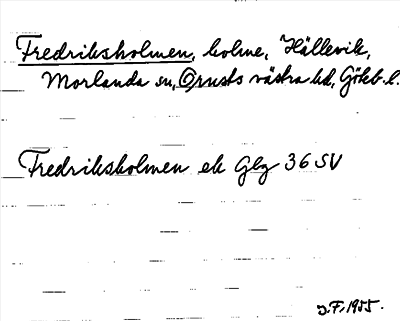 Fredriksholmen, holme, Hällevik,
Morlanda sn, Orusts västra hd, Gbg o. Boh. l.
Fredriksholmen ek Gbg 36 SV
J.F. 1955.